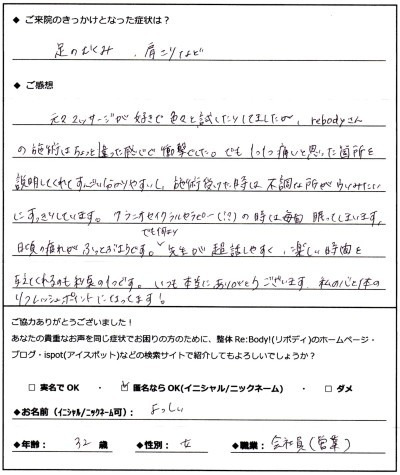 ◆ ご来院のきっかけとなった症状は？
足のむくみ、肩こりなど
◆ ご感想
元々マッサージが好きで色々と試したりしてましたが、rebodyさん
の施術はちょっと違った感じで衝撃でした。でも1つ1つ痛いと思った箇所を
説明してくれてすごい分かりやすいし、施術後った時は不調な所がウソみたい
にすっきりしています。クラニオセイクラルセラピー(!?)の時は毎回眠ってしまいます。
でも何より
日頃の疲れがふっとぶようです。先生が超話しやすく、楽しい時間を
与えてくれるのも魅力の1つです。いつも本当にありがとうございます。私の心と体の
リフレッシュポイントになってます！
ご協力ありがとうございました！
あなたの貴重なお声を同じ症状でお困りの方のために、整体 Re:Body!(リボディ)のホームページ・
ブログ・ispot(アイスポット)などの検索サイトで紹介してもよろしいでしょうか？
□ 実名でOK ・ ☑ 匿名ならOK(イニシャル/ニックネーム) ・ □ ダメ
◆お名前（イニシャル/ニックネーム可）： よっしい
◆年齢： 32 歳 ◆性別： 女 ◆職業： 会社員（営業）